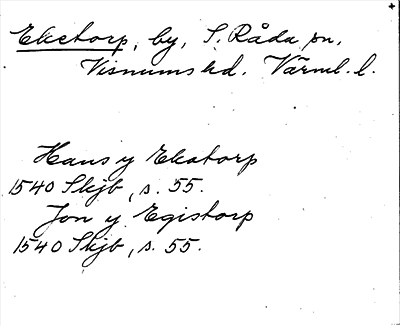 Eketorp, by, S. Råda sn,
Visnums hd. Värml. l.
Hans y Ekatorp
1540 Skjb, s. 55.
Jon y Egistorp
1540 Skjb, s. 55.